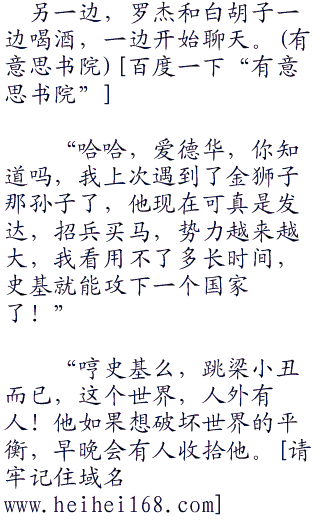 另一边，罗杰和白胡子一
边喝酒，一边开始聊天。(有
意思书院)[百度一下“有意
思书院”]
“哈哈，爱德华，你知
道吗，我上次遇到了金狮子
那孙子了，他现在可真是发
达，招兵买马，势力越来越
大，我看用不了多长时间，
史基就能攻下一个国家
了！”
“哼史基么，跳梁小丑
而已，这个世界，人外有
人！他如果想破坏世界的平
衡，早晚会有人收拾他。[请
牢记住域名
www.heihei168.com]